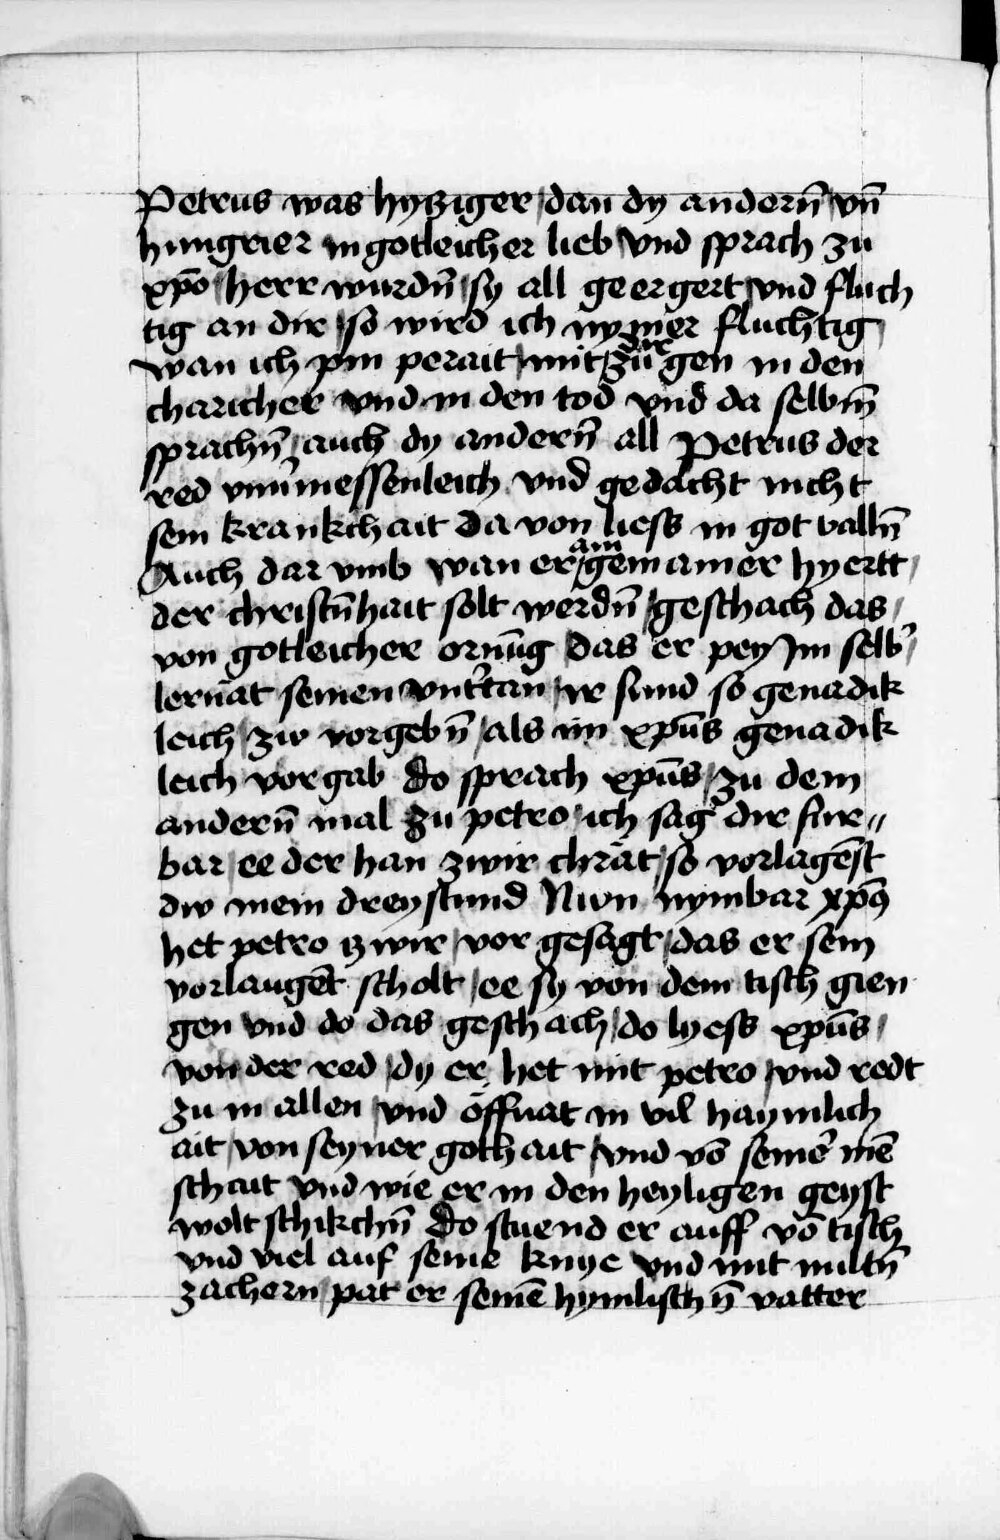 Petrus was hytziger dan dy andern̄ vn̄
hungrier in gotleicher lieb vnd sprach zu
xp̄o herr wurdn̄ sy all geergert vnd fluch
tig an dir so wird ich nymer fluchtig
wan ich pin perait mit dir zu gen in den
charicher vnd in den tod vnd da selbm̄
sprachn̄ auch dy andern̄ all Petrus der
red vnmessenleich vnd gedacht nicht
sein krankchait Da von liess in got valln̄
Auch dar vmb wan er ain gemainer hyertt
der christn̄hait solt werdn̄ geschach das
von gotleicher ornūg das er pey Im selb̕
lernat seinen vnt̕tan ir sund so genadik
leich zw vorgebn̄ als im xp̄us genadik
leich vorgab do sprach xp̄us zu dem
andern̄ mal zu petro ich sag dir fur=
bar ee der han zwir chrāt so vorlagēst
dw mein dreystund Nwn nymbar xp̄s
het petro tzwir vor gesagt das er sein
vorlaugēt scholt ee sy von dem tisch gien
gen vnd do das geschach do lyess xp̄us
von der red dy er het mit petro vnd redt
zu in allen vnd öffnat in vil haymlich
ait von seyner gothait vnd vō seine̕ mē
schait vnd wie er in den heyligen geyst
wolt schikchn̄ Do stuend er auff vō tisch
vnd viel auf seine knye vnd mit miltn̄
zachern pat er seinē hymlischn̄ vatter